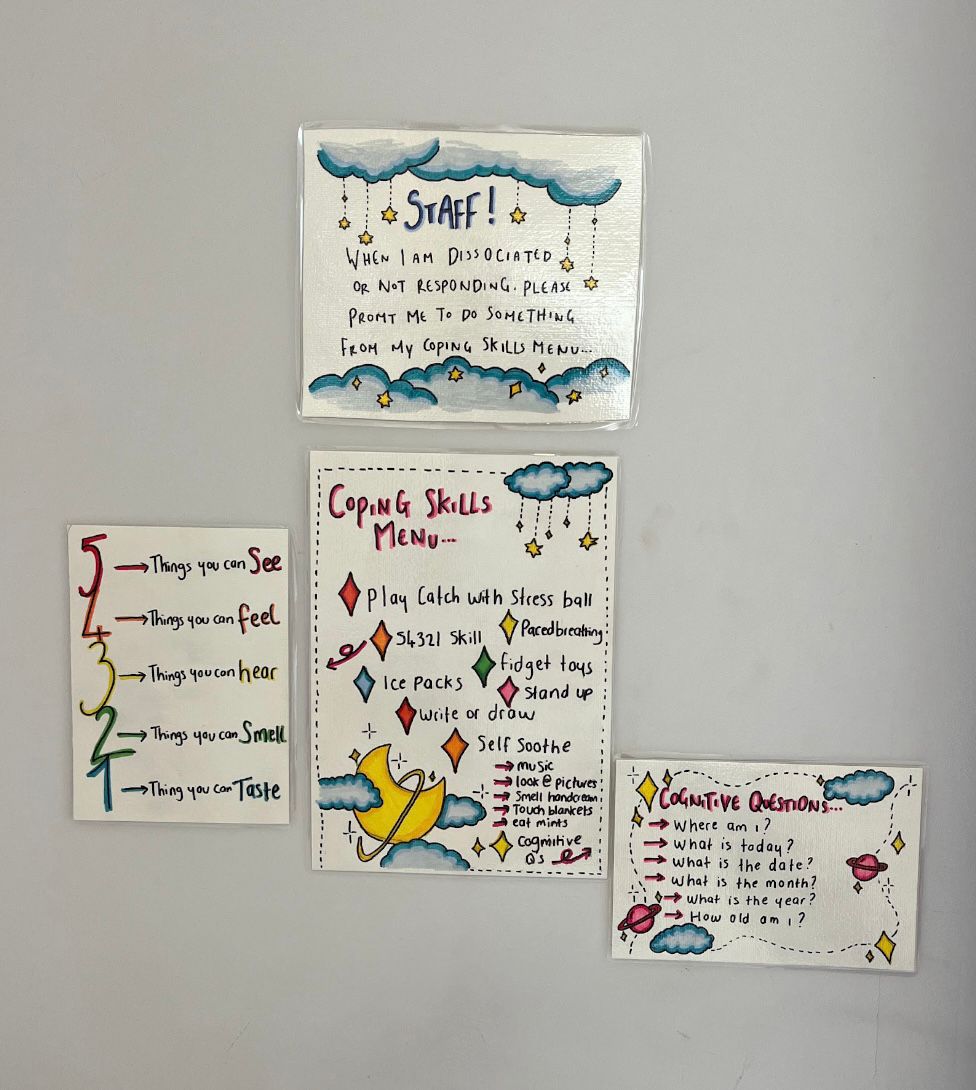 STAFF!
WHEN I AM DISSOCIATED
OR NOT RESPONDING. PLEASE
PROMT ME TO DO SOMETHING
FROM MY COPING SKILLS MENU...
COPING SKILLS
MENU...
Play Catch with Stress ball
54321 Skill
Paced breathing
fidget toys
Ice Packs
Stand up
Write or draw
Self Soothe
music
look @ pictures
Smell handcream
Touch blankets
eat mints
Cognitive
Q's
5 Things you can See
4 Things you can feel
3 Things you can hear
2 Things you can Smell
1 Thing you can Taste
COGNITIVE QUESTIONS...
Where am i?
What is today?
What is the date?
What is the month?
What is the year?
How old am i?